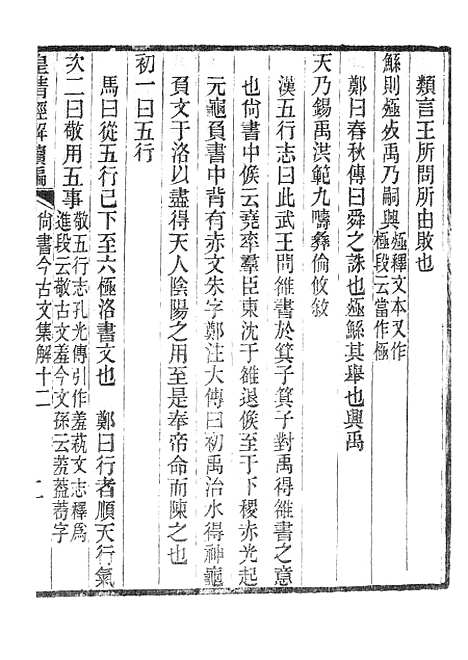 類言王所問所由敗也
鯀則殛死禹乃嗣興殛釋文本又作
極段云當作極
鄭曰春秋傳曰舜之誅也殛鯀其舉也興禹
天乃錫禹洪範九疇彝倫攸敘
漢五行志曰此武王問雒書於箕子箕子對禹得雒書之意
也尙書中候云堯率羣臣東沈于雒退候至于下稷赤光起
元龜負書中背有赤文朱字鄭注大傳曰初禹治水得神龜
負文于洛以盡得天人陰陽之用至是奉帝命而陳之也
初一曰五行
馬曰從五行已下至六極洛書文也 鄭曰行者順天行氣
次二曰敬用五事敬五行志孔光傳引作羞蓺文志釋爲
進段云敬古文羞今文孫云羞蓋茍字
皇淸經解續編
尙書今古文集解十二